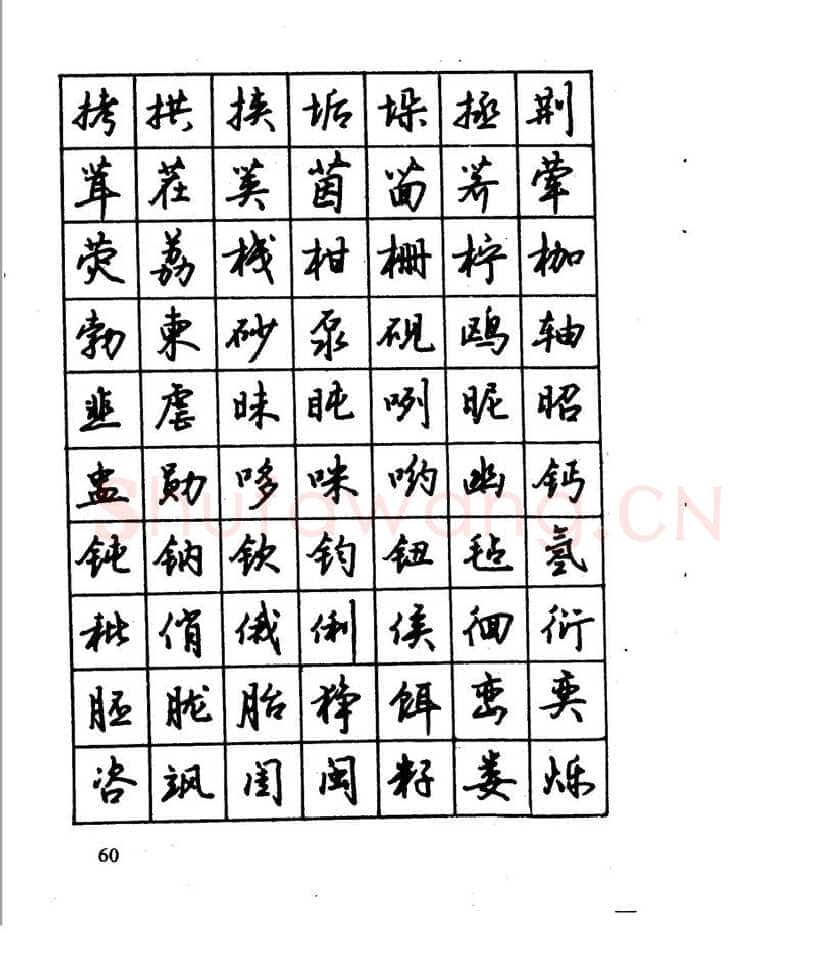 拷拱挟垢垛拯荆
茸茬荚茵茴荞荤
荧荔栈柑栅柠枷
勃柬砂泵砚鸥轴
韭虐昧盹咧昵昭
盅勋哆咪哟幽钙
钝钠钦钧钮毡氢
秕俏俄俐侯徊衍
胚胧胎狰饵峦奕
咨飒闺闽籽娄烁
60
Shufawang.CN